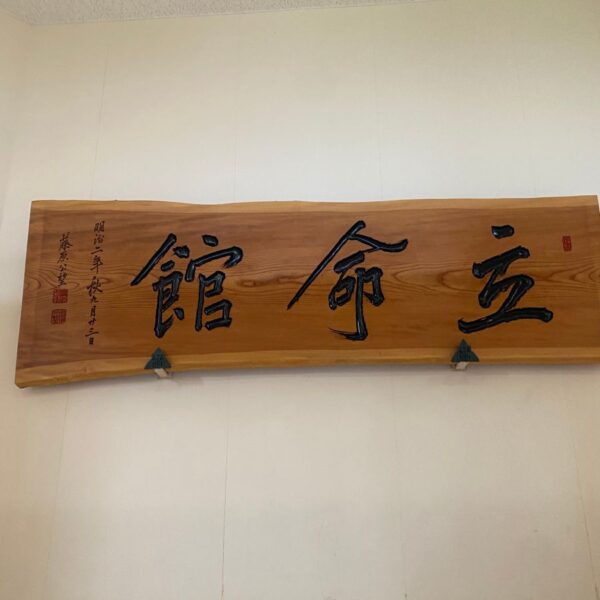 立命館
明治二年秋九月廿三日
藤原公望